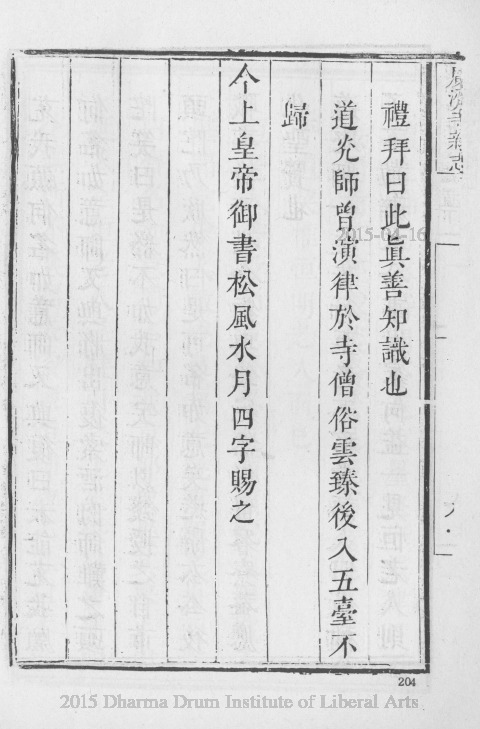 禮拜曰此眞善知識也
道光師曾演律於寺僧俗雲臻後入五臺不
歸
今上皇帝御書松風水月四字賜之
204
2015-04-16
2015 Dharma Drum Institute of Liberal Arts